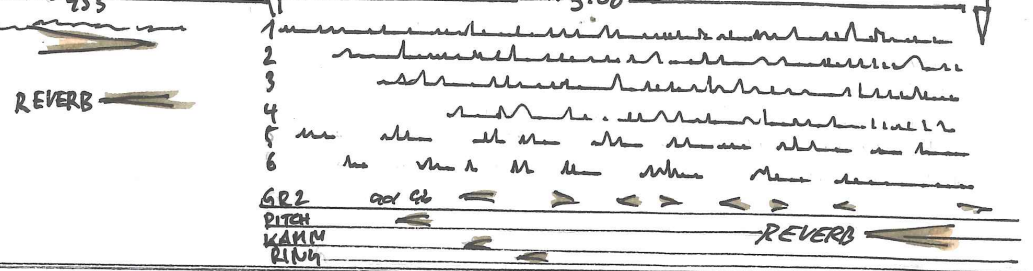 REVERB
1
2
3
4
5
6
GR2
PITCH
KAMM
RING
REVERB